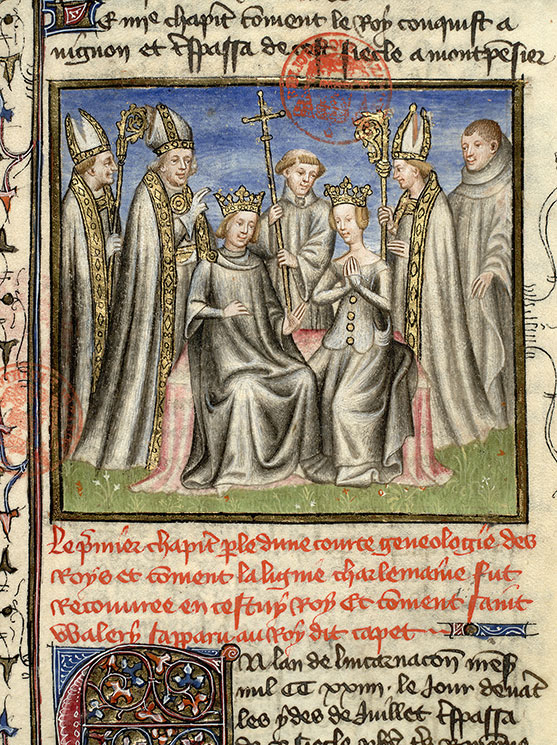 Et me chapitre coment le Roy conquist a
uignon et t̃spassa de cest siecle a montpensier
Le p̃mier chapitr̃ p̃le dune courte geneologie des
Roys et cõment la lignie charlemaine fut
Recouuree en cestuy Roy Et cõment saint
Walery sapparu au Roy dit capet
En lan de lincarnacõn
mil CC xxiii . le Jour deuãt
les ydes de Juillet t̃spassa